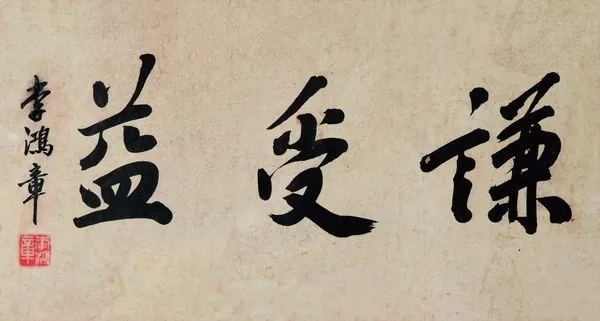 謙受益
李鴻章